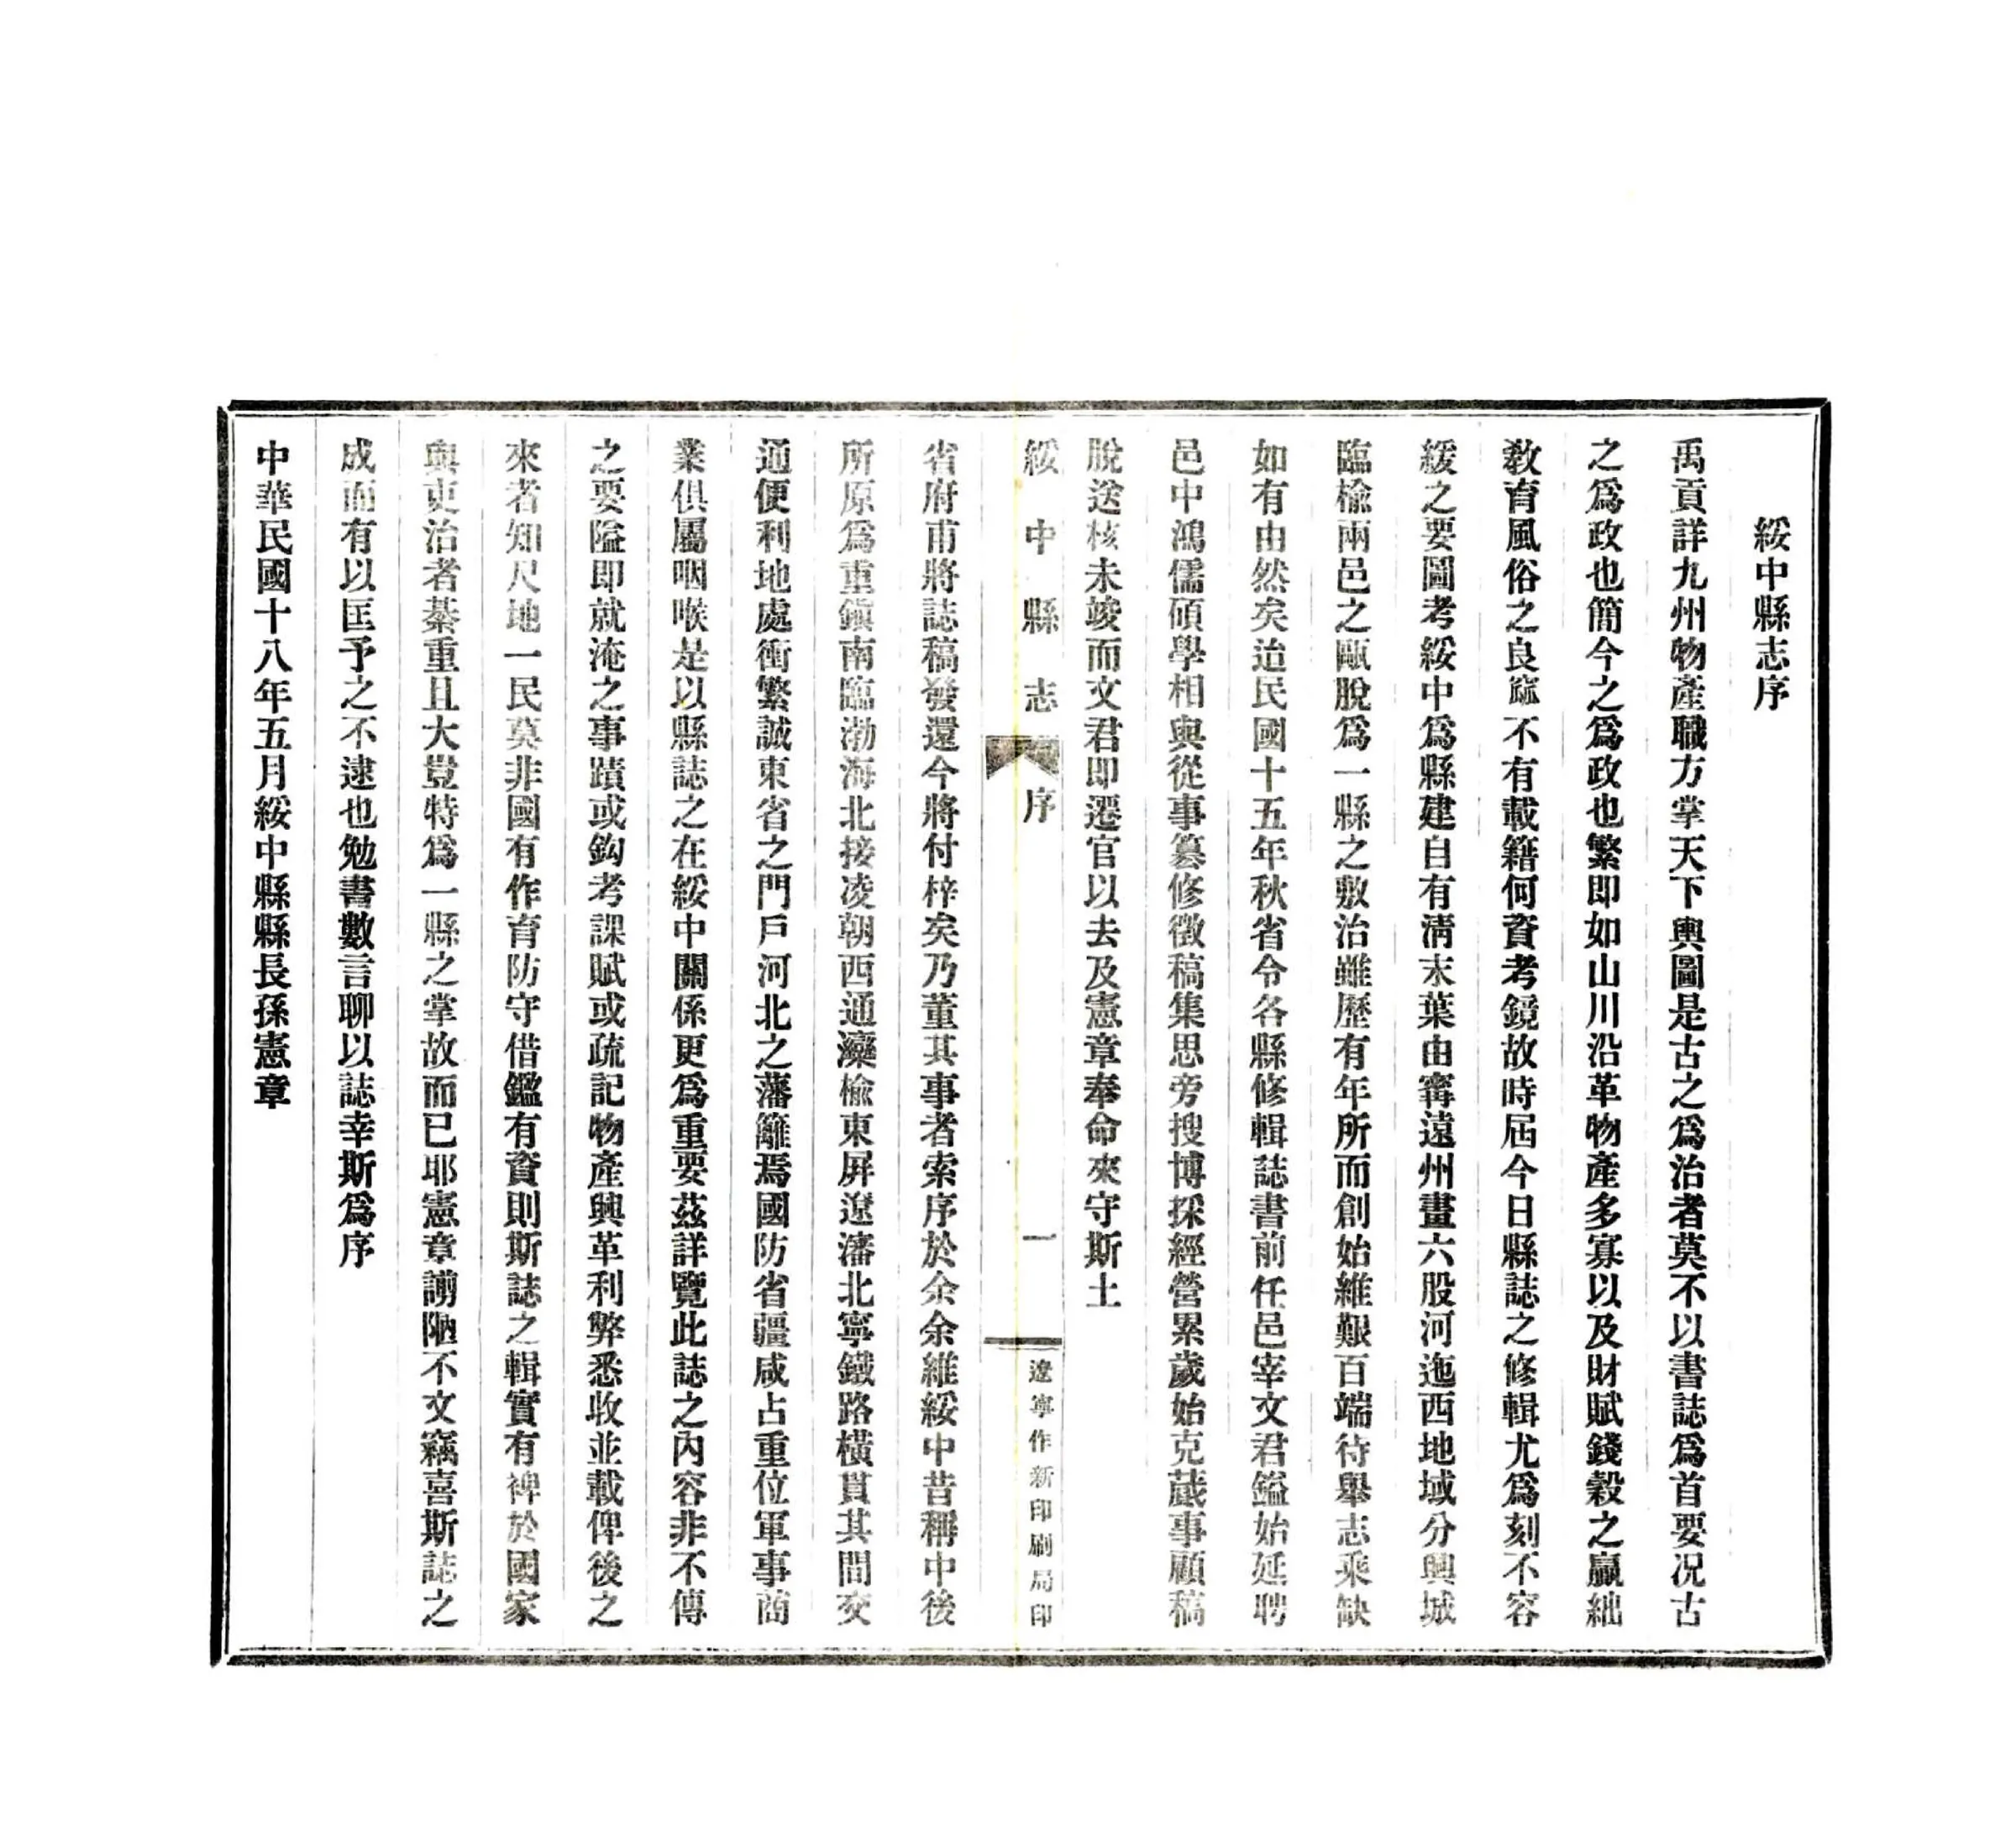 綏中縣志序
禹貢詳九州物產職方掌天下輿圖是古之爲治者莫不以書誌爲首要况古
之爲政也簡今之爲政也繁即如山川沿革物產多寡以及財賦錢穀之贏絀
敎育風俗之良窳不有載籍何資考鏡故時屆今日縣誌之修輯尤爲刻不容
緩之要圖考綏中爲縣建自有淸末葉由甯遠州畫六股河迤西地域分興城
臨榆兩邑之甌脫爲一縣之敷治雖歷有年所而創始維艱百端待舉志乘缺
如有由然矣迨民國十五年秋省令各縣修輯誌書前任邑宰文君鎰始延聘
邑中鴻儒碩學相與從事纂修徵稿集思旁搜博採經營累歲始克蕆事顧稿
脫送核未竣而文君即遷官以去及憲章奉命來守斯土
綏中縣志 序 一 遼寧作新印刷局印
省府甫將誌稿發還今將付梓矣乃董其事者索序於余余維綏中昔稱中後
所原爲重鎭南臨渤海北接凌朝西通灤榆東屏遼瀋北寧鐵路橫貫其間交
通便利地處衝繁誠東省之門戶河北之藩籬焉國防省疆咸占重位軍事商
業俱屬咽喉是以縣誌之在綏中關係更爲重要茲詳覽此誌之內容非不傳
之要隘即就淹之事蹟或鈎考課賦或疏記物產興革利弊悉收並載俾後之
來者知尺地一民莫非國有作育防守借鑑有資則斯誌之輯實有裨於國家
與吏治者綦重且大豈特爲一縣之掌故而已耶憲章謭陋不文竊喜斯誌之
成而有以匡予之不逮也勉書數言聊以誌幸斯爲序
中華民國十八年五月綏中縣縣長孫憲章